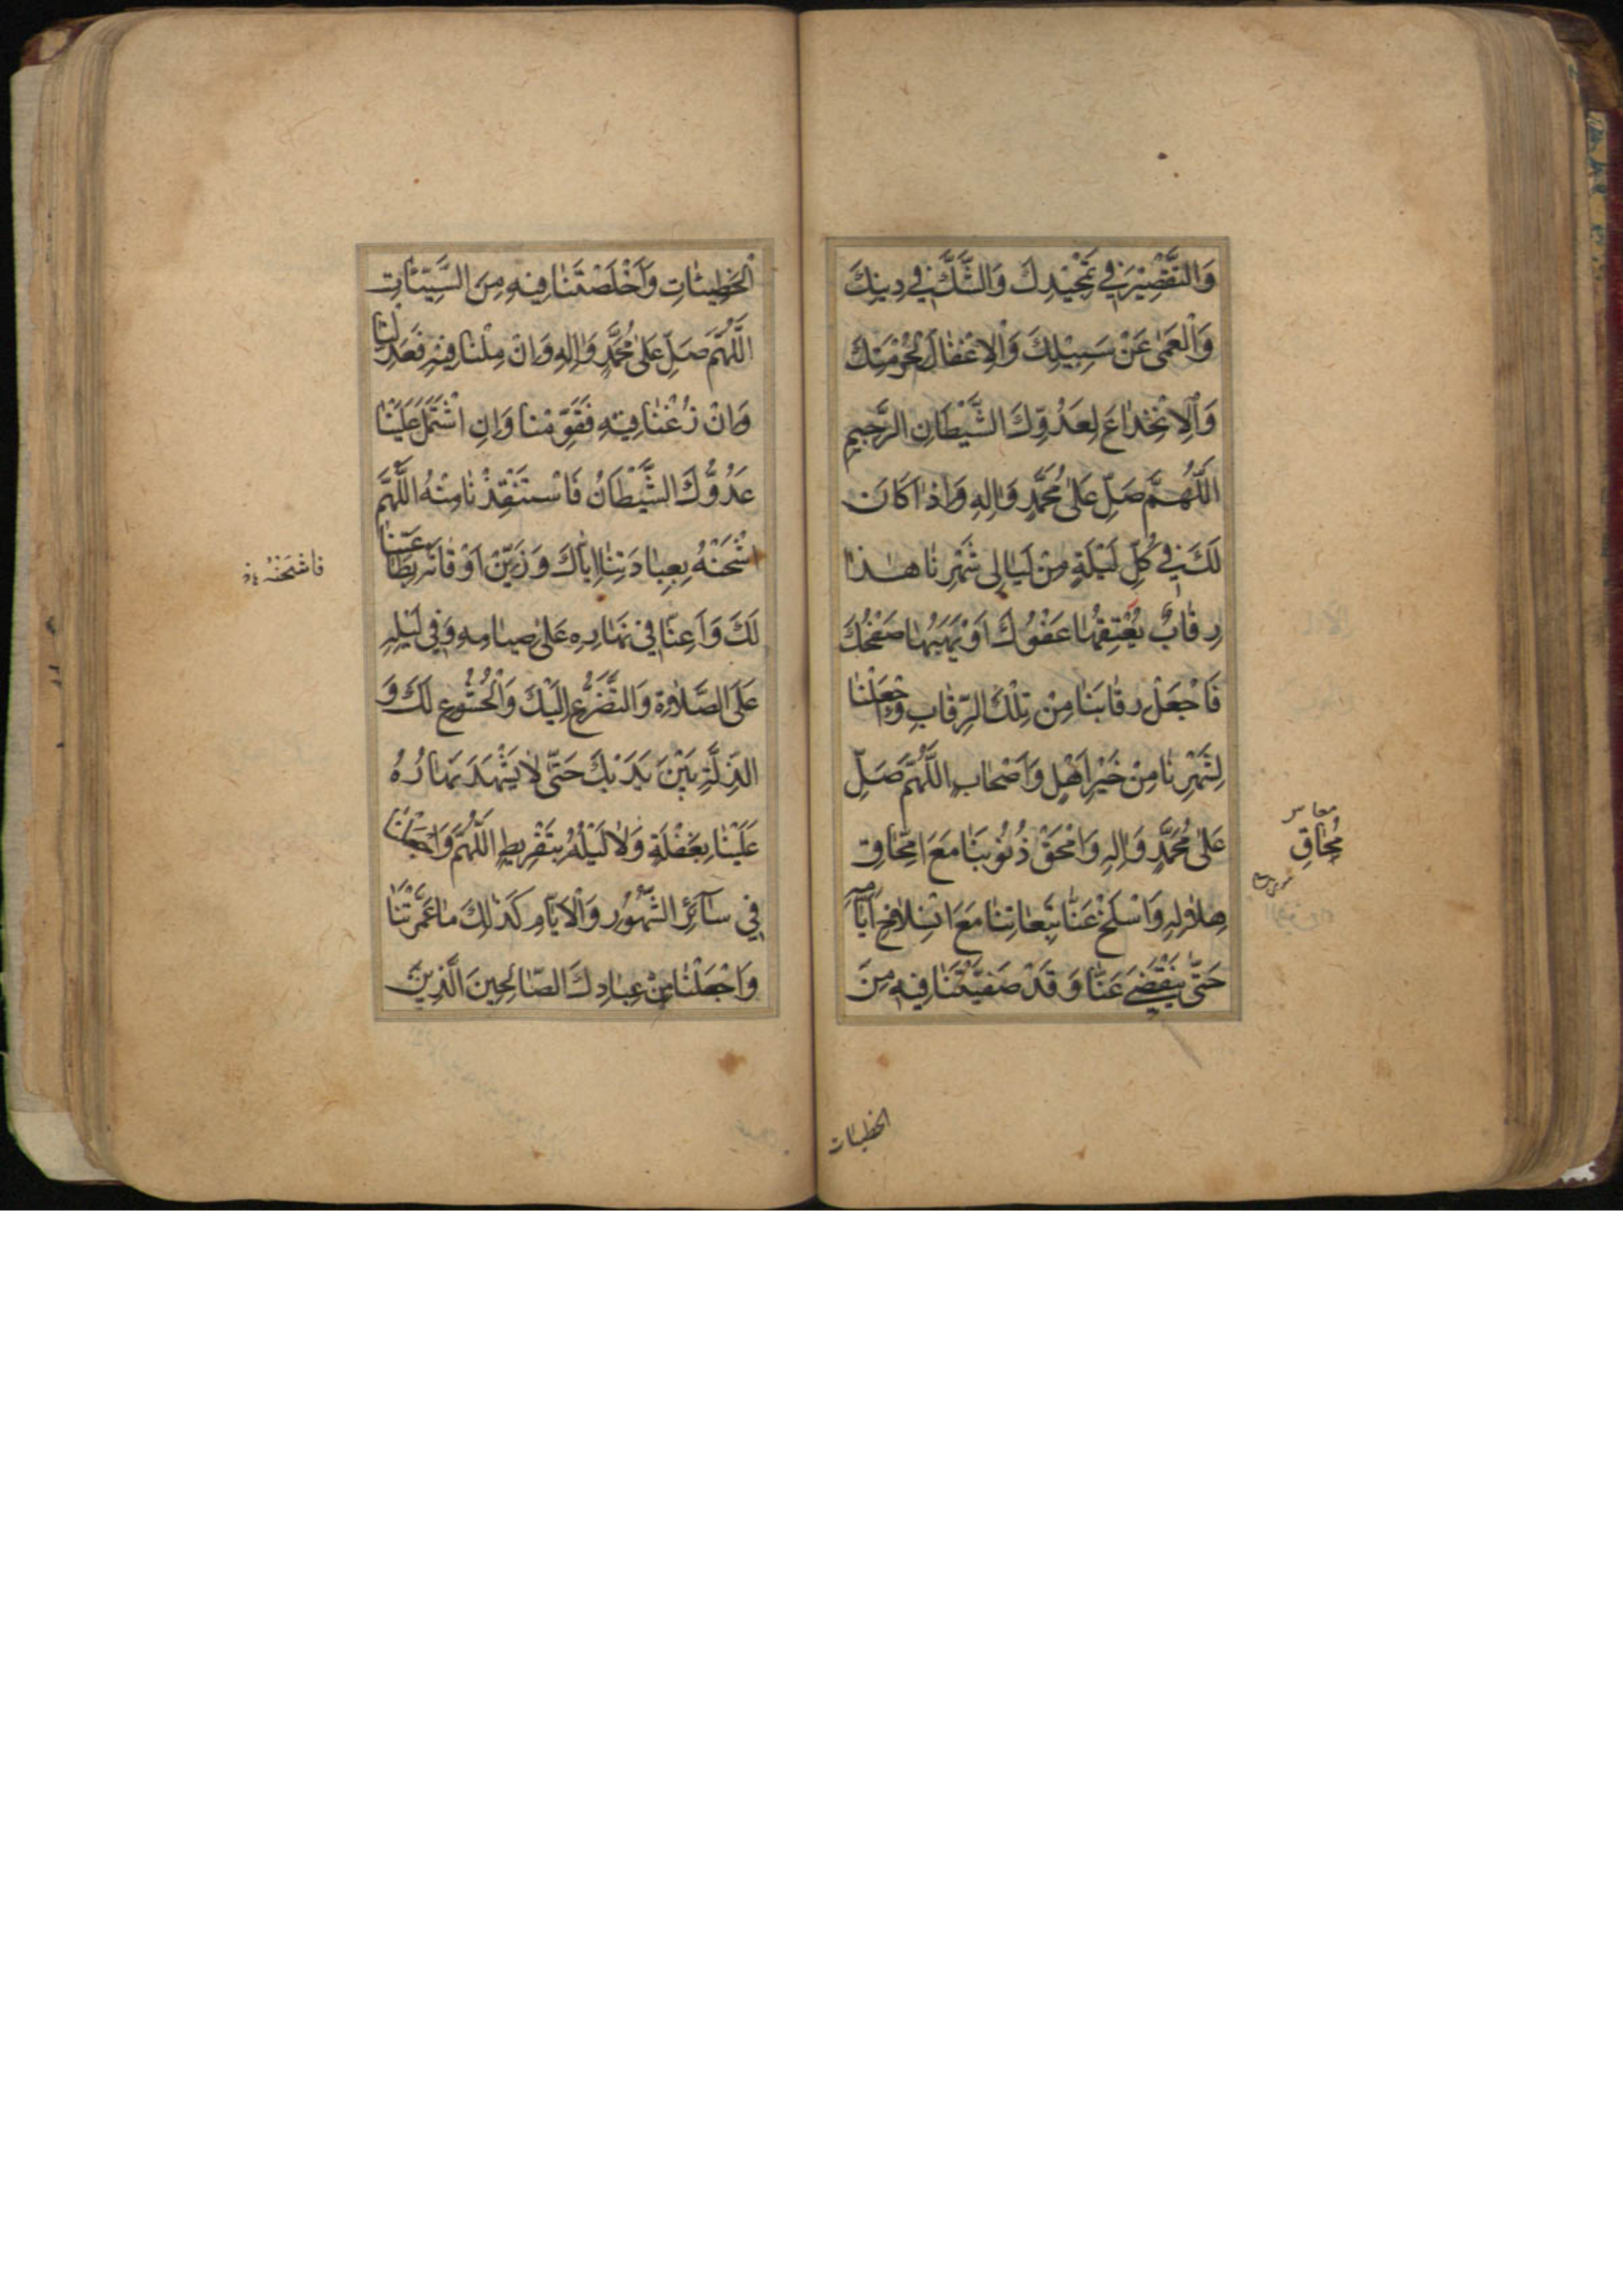 وَالتَّقْصِيْرَ فِي تَمْجِيْدِكَ وَالشَّكَّ فِي دِينِكَ
وَالْعَمٰى عَنْ سَبِيْلِكَ وَالْاِغْفَالَ لِحُرْمَتِكَ
وَالْاِنْخِدَاعَ لِعَدُوِّكَ الشَّيْطَانِ الرَّجِيمِ
اَللّٰهُمَّ صَلِّ عَلٰى مُحَمَّدٍ وَاٰلِهِ وَاِذَا كَانَ
لَكَ فِي كُلِّ لَيْلَةٍ مِنْ لَيَالِي شَهْرِنَا هٰذَا
رِقَابٌ يُعْتِقُهَا عَفْوُكَ اَوْ يَهَبُهَا صَفْحُكَ
فَاجْعَلْ رِقَابَنَا مِنْ تِلْكَ الرِّقَابِ وَاجْعَلْنَا
لِشَهْرِنَا مِنْ خَيْرِ اَهْلٍ وَاَصْحَابٍ اَللّٰهُمَّ صَلِّ
عَلٰى مُحَمَّدٍ وَاٰلِهِ وَامْحَقْ ذُنُوْبَنَا مَعَ امِّحَاقِ
هِلَالِهِ وَاسْلَخْ عَنَّا تَبِعَاتِنَا مَعَ انْسِلَاخِ اَيَّامِهِ
حَتّٰى يَنْقَضِيَ عَنَّا وَقَدْ صَفَّيْتَنَا فِيهِ مِنَ
مُحَاقِ
الخطيئات
الْخَطِيئَاتِ وَاَخْلَصْتَنَا فِيهِ مِنَ السَّيِّئَاتِ
اَللّٰهُمَّ صَلِّ عَلٰى مُحَمَّدٍ وَاٰلِهِ وَاِنْ مِلْنَا فِيهِ فَعَدِّلْنَا
وَاِنْ زُغْنَا فِيهِ فَقَوِّمْنَا وَاِنِ اشْتَمَلَ عَلَيْنَا
عَدُوُّكَ الشَّيْطَانُ فَاسْتَنْقِذْنَا مِنْهُ اَللّٰهُمَّ
اشْحَنْهُ بِعِبَادَتِنَا اِيَّاكَ وَزَيِّنْ اَوْقَاتَهُ بِطَاعَتِنَا
لَكَ وَاَعِنَّا فِي نَهَارِهِ عَلٰى صِيَامِهِ وَفِي لَيْلِهِ
عَلَى الصَّلٰاوةِ وَالتَّضَرُّعِ اِلَيْكَ وَالْخُشُوعِ لَكَ وَ
الذِّلَّةِ بَيْنَ يَدَيْكَ حَتّٰى لَا يَشْهَدَ نَهَارُهُ
عَلَيْنَا بِغَفْلَةٍ وَلَا لَيْلُهُ بِتَفْرِيطٍ اَللّٰهُمَّ وَاجْعَلْنَا
فِي سَائِرِ الشُّهُورِ وَالْاَيَّامِ كَذٰلِكَ مَا عَمَّرْتَنَا
وَاجْعَلْنَا مِنْ عِبَادِكَ الصَّالِحِينَ الَّذِينَ
فاشحنه